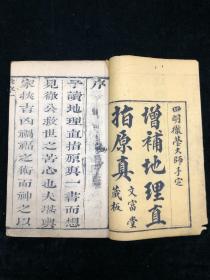 四明徹瑩大師手定
增補地理直
指原真
文富堂
藏板
序
予讀地理直指原真一書而想
見徹公救世之苦心也夫堪輿
家扶吉凶禍福之術而神之以